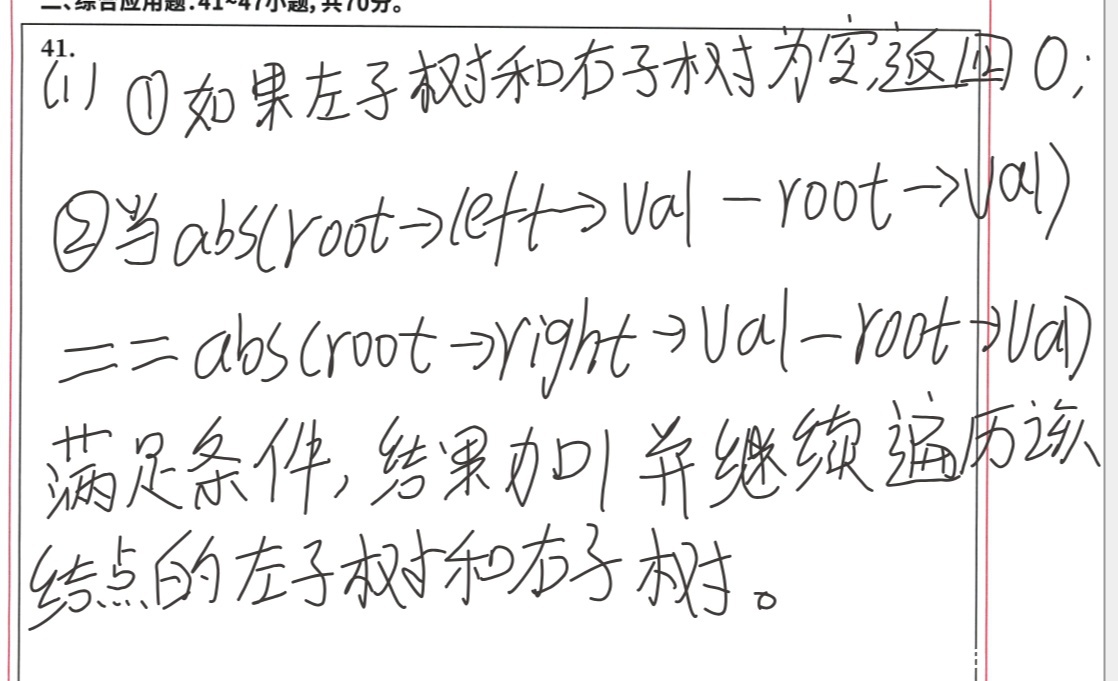 二、综合应用题:41~47小题,共70分。
41.
(1) ①如果左子树和右子树为空,返回0;
②当abs(root→left→val-root→val)
==abs(root→right→val-root→val)
满足条件,结果加1并继续遍历该
结点的左子树和右子树。